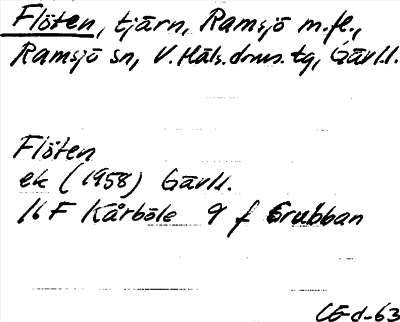 Flöten, tjärn, Ramsjö m.fl.,
Ramsjö sn, V. Häls. doms. tg, Gävl.l.
Flöten
ek (1958) Gävl.l.
16 F Kårböle 9 f Grubban
CE d-63